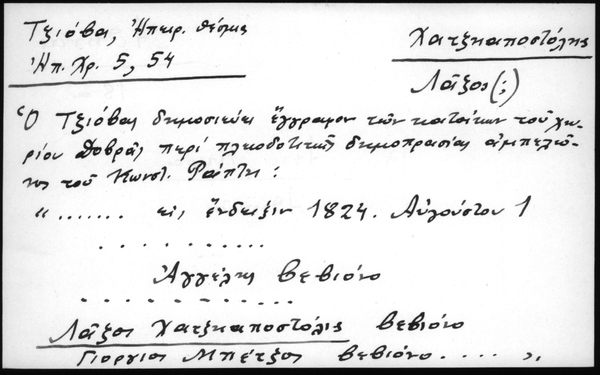 Τζιόβα, Ἠπειρ. θέσμια
Ἠπ. Χρ. 5, 54
Χατζηαποστόλης
Λᾶζος (;)
Ὁ Τζιόβας δημοσιεύει ἔγγραφον τῶν κατοίκων τοῦ χω-
ρίου Δοβρᾶς περί πλειοδοτικῆς δημοπρασίας ἀμπελῶ-
νος τοῦ Κωνστ. Ράπτη :
“ ....... εἰς ἔνδειξιν 1824. Αὐγούστου 1
..........
Ἀγγέλης βεβιόνο
..........
Λᾶζος Χατζηαποστόλις βεβιόνο
Γιόργιος Μπέτζος βεβιόνο..... „